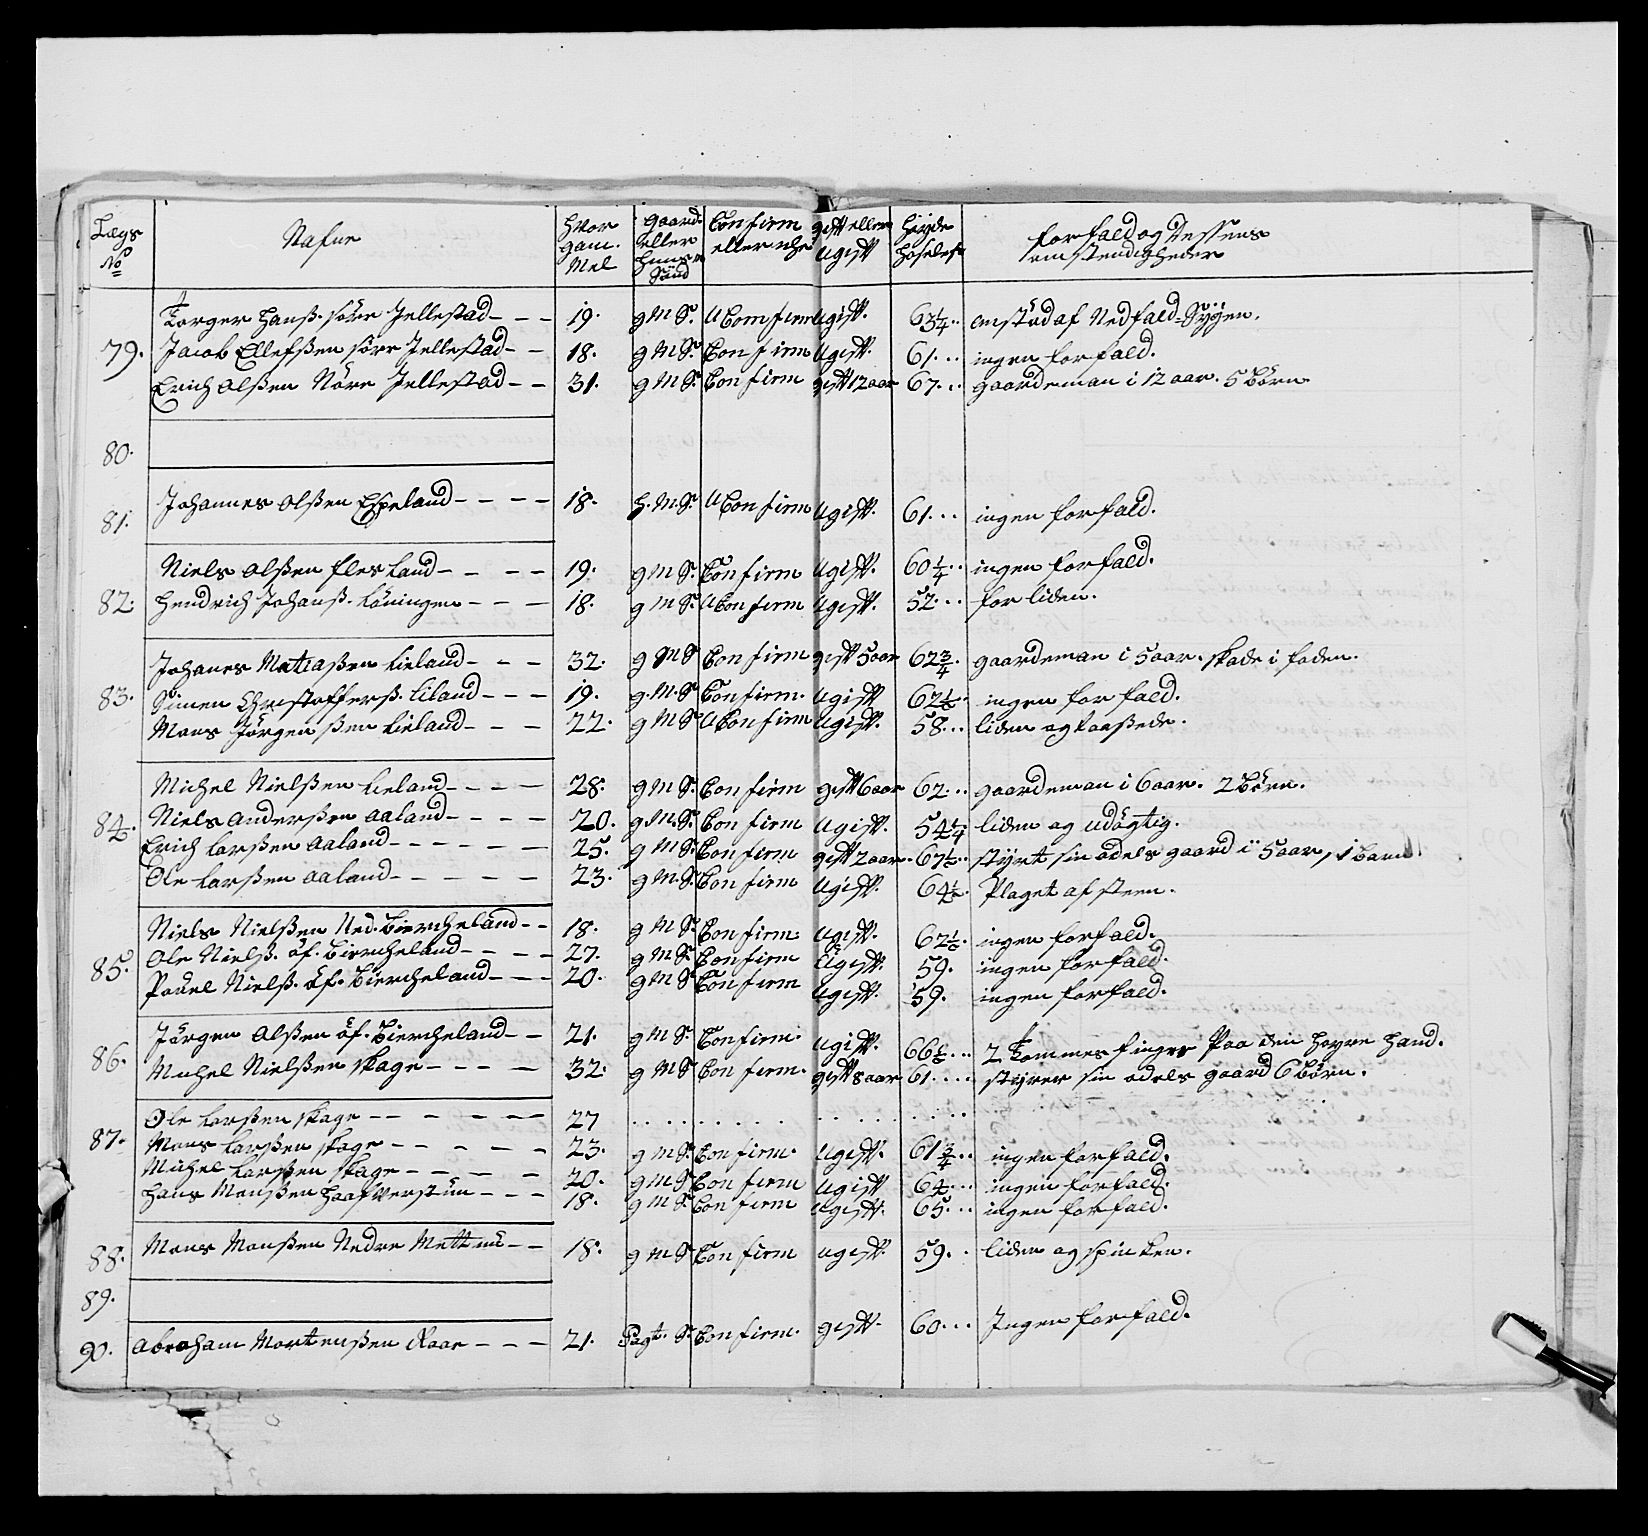 Lægs No | Nafne | Hvor gam. Mel | Gaard. eller Huus. Sönd | Confirm eller ehe | gift eller Ugift | Höyde Hoseleste | forfald og Dessens omstendigheder
79. | Torger Hanß. söre Jellestad | 19. | g M S. | UComfirm | Ugift. | 63 1/4 | Anstöd af Nedfald-Sygen.
Jacob Ellefßen söre Jellestad | 18. | g M S. | Confirm | Ugift. | 61 | ingen forfald.
Erich Olßen Nöre Jellestad | 31. | g M S. | Confirm | gift 12 aar | 67 | gaardeman i 12 aar. 5 börn
80.
81. | Johannes Olßen Espeland | 18. | H. M. S. | UConfirm | Ugift. | 61 | ingen forfald.
82. | Niels Olßen Flesland | 19. | g M S. | Confirm | Ugift. | 60 1/4 | ingen forfald.
Hendrich Johanß. Löningen | 18. | g M S. | UConfirm | Ugift. | 52 | for liden.
83. | Johanes Matiaßen Lieland | 32. | g M S | Confirm | gift 5 aar | 62 3/4 | gaardeman i 5 aar. skade i foden.
Simen Christofferß. Liland | 19. | g. M. S. | Confirm. | Ugift | 62 1/2 | ingen forfald.
Mons Jörgenßen Lieland | 22. | g M S | UConfirm | Ugift. | 58 | liden og
84. | Michel Nielßen Lieland | 28. | g M S. | Confirm | gift 6 aar | 62 | gaardeman i 6 aar. 2 börn.
Niels Anderßen Aaland | 20. | g. M. S. | Confirm | Ugift. | 54 1/4 | liden og udögtig.
Erich Larßen Aaland | 25. | g M S. | Confirm | gift 2 aar. | 67 1/2 | styrt sin odels gaard i 5 aar, 1 barn
Ole Larßen Aaland | 23. | g M. S. | Confirm | Ugift. | 64 1/2 | Plaget af steen.
85. | Niels Nielßen Ned. Biercheland | 18. | g M S. | Confirm. | Ugift. | 62 1/2 | ingen forfald.
Ole Nielß. öf. Biercheland | 27. | g M S. | Confirm | Ugift. | 59. | ingen forfald.
Pouel Nielß. öf. Biercheland | 20. | g M S | Confirm | Ugift. | 59. | ingen forfald.
86. | Jörgen Olßen öf. Biercheland | 21. | g M S. | Confirm. | Ugift. | 66 1/2 | 2 Kommes finger Paa den Høyre Hand.
Michel Nielßen Skage | 32. | g M S. | Confirm. | gift 8 aar | 61 | styrer sin odels gaard 6 börn.
87. | Ole Larßen Skage | 27
Mons Larßen Skage | 23. | g M S. | Confirm. | Ugift. | 61 3/4 | ingen forfald.
Michel Larßen Skage | 20. | g M S | Confirm | Ugift | 64 | ingen forfald.
Hans Monßen Haafverstun | 18. | g M S. | Confirm | Ugift. | 65 | ingen forfald.
88. | Mons Monßen Nedre Mettnu | 18. | g M S. | Confirm | Ugift. | 59. | liden og spincken.
89.
90. | Abraham Mortenßen Raae | 21. | Pagt. S. | Confirm. | gift. | 60 | Ingen forfald.